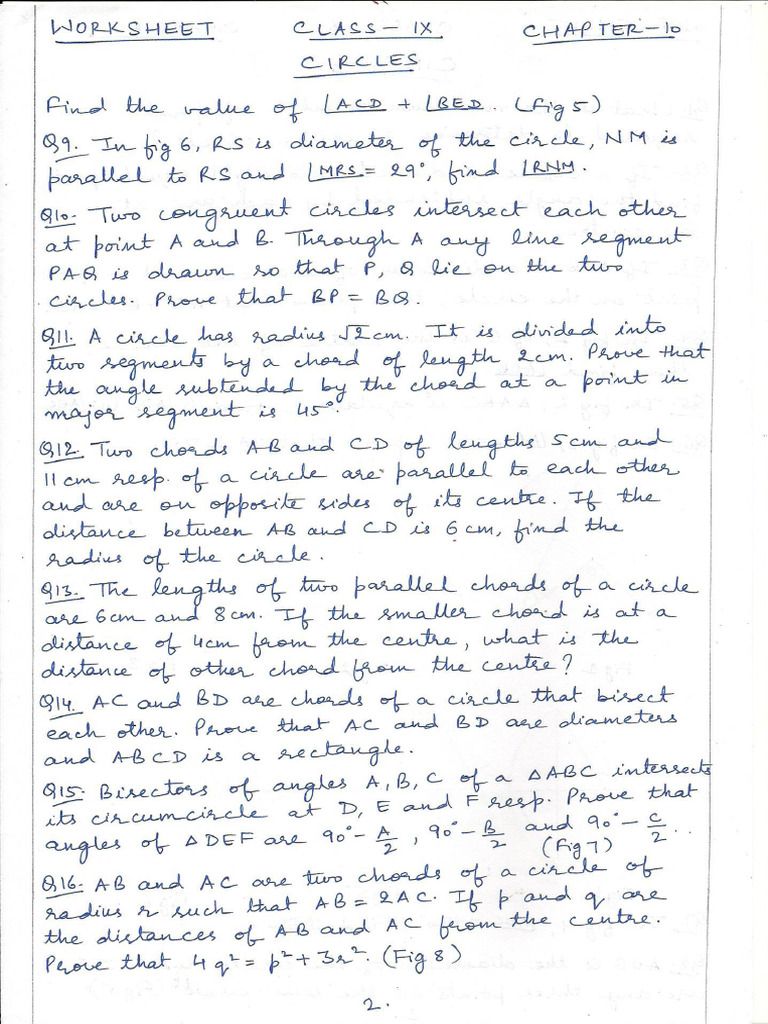 WORKSHEET CLASS-IX CHAPTER-10
CIRCLES
Find the value of ∠ACD + ∠BED. (Fig 5)
Q9. In fig 6, RS is diameter of the circle, NM is
parallel to RS and ∠MRS = 29°, find ∠RNM.
Q10. Two congruent circles intersect each other
at point A and B. Through A any line segment
PAQ is drawn so that P, Q lie on the two
circles. Prove that BP = BQ.
Q11. A circle has radius √2 cm. It is divided into
two segments by a chord of length 2cm. Prove that
the angle subtended by the chord at a point in
major segment is 45°.
Q12. Two chords AB and CD of lengths 5cm and
11cm resp. of a circle are parallel to each other
and are on opposite sides of its centre. If the
distance between AB and CD is 6cm, find the
radius of the circle.
Q13. The lengths of two parallel chords of a circle
are 6cm and 8cm. If the smaller chord is at a
distance of 4cm from the centre, what is the
distance of other chord from the centre?
Q14. AC and BD are chords of a circle that bisect
each other. Prove that AC and BD are diameters
and ABCD is a rectangle.
Q15. Bisectors of angles A, B, C of a △ABC intersects
its circumcircle at D, E and F resp. Prove that
angles of △DEF are 90°-A/2, 90°-B/2 and 90°-C/2..
(Fig 7)
Q16. AB and AC are two chords of a circle of
radius r such that AB = 2AC. If p and q are
the distances of AB and AC from the centre.
Prove that 4q² = p² + 3r². (Fig 8)
2.